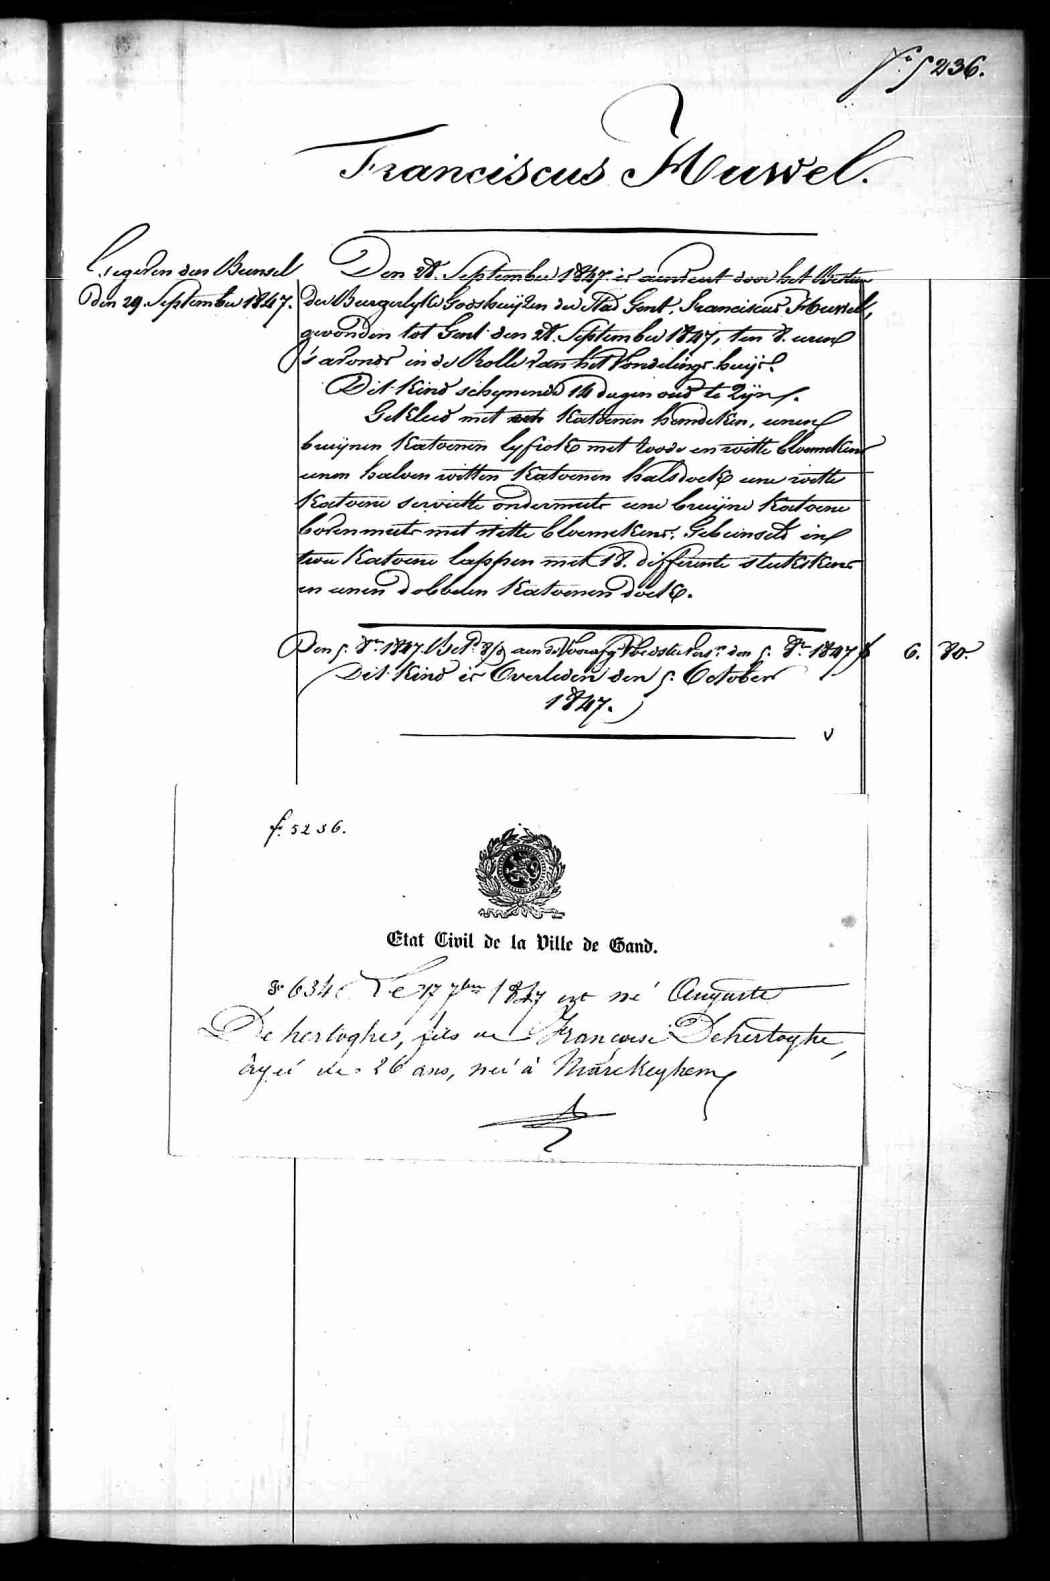 f.° 5236.
Franciscus Huwel.
Gegeven den Bunsel
den 29. September 1847.
Den 28. September 1847 is aenveert door het Bestuur
der Burgerlyke Godshuijzen der Stad Gent, Franciscus Huwel,
gevonden tot Gent den 28. September 1847, ten 8. uren
's avonds in de Rolle van het Vondelings huijs.
Dit kind schynende 14 dagen oud te Zijn.
Gekleed met een Katoenen hemdeken, eenen
bruijnen Katoenen lyfrok met roode en witte bloemekens
eenen halven witten Katoenen halsdoek eene witte
Katoene serviette ondermuts eene bruijne Katoene
bovenmuts met witte bloemekens. Gebunseld in
twee Katoene lappen met 18. differente stukskens
en eenen dobbelen Katoenen doek.
Den 5. 8.er 1847 Bet.d aen de Voedster den 5. 8.er 1847 f 6. 80.
Dit Kind is Overleden den 5. October
1847.
v
f.° 5236.
Etat Civil de la Ville de Gand.
634 Le 17 7bre 1847 est né Auguste
De hertoghe, fils de Françoise Dehertoghe,
âgée de 26 ans, née à Marckeghem